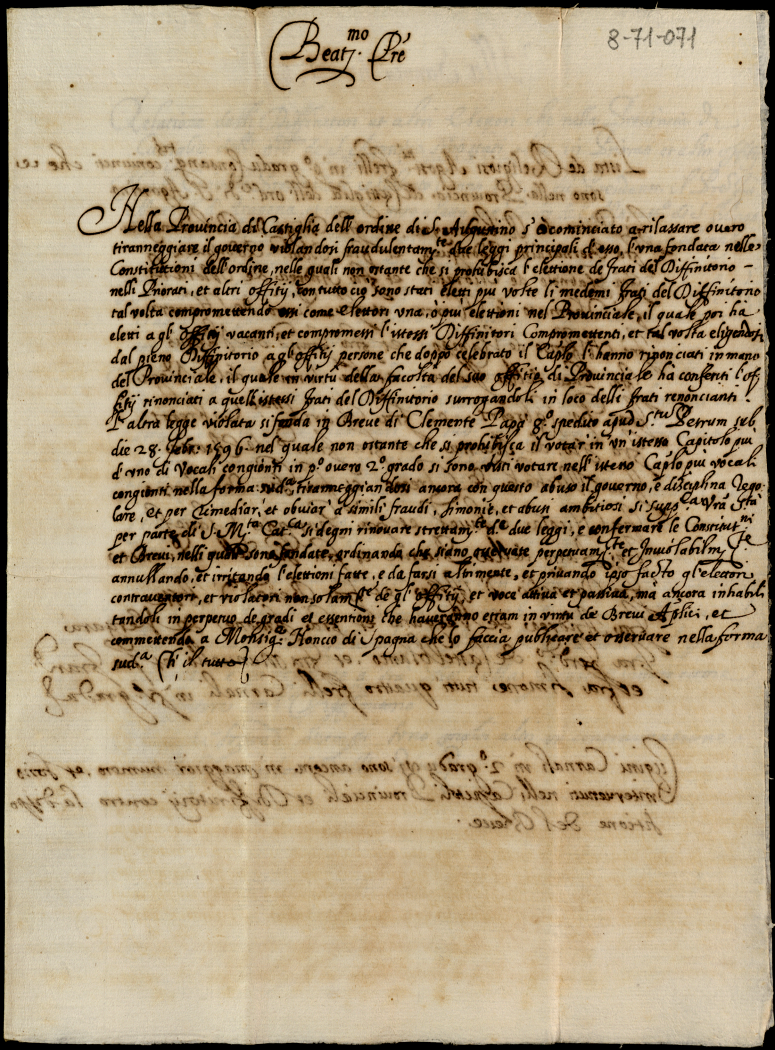 8-71-071
Beatmo. Pre
Nella Provincia di Castiglia dell'ordine di S. Augustino s'è cominciato a rilassare overo
tiranneggiare il governo violandosi fraudulentamte due leggi principali d'esso, l'una fondata nelle
Constitutioni dell'ordine, nelle quali non ostante che si prohibisca l'elettione de frati del Diffinitorio
nelli Priorati, et altri offitij, con tutto ciò sono stati eletti più volte li medemi frati del Diffinitorio
tal volta compromettendo essi come elettori una, o più elettioni nel Provinciale, il quale poi ha
eletti a gl' offitij vacanti, et compromessi l'istessi Diffinitori Compromettenti, et tal volta eligendosi
dal pieno Diffinitorio a gl' offitij persone che doppo celebrato il Caplo l'hanno riponciati in mano
del Provinciale, il quale in virtù della facoltà del suo offitio di Provinciale ha conferiti l'of
fitij rinonciati a quell'istessi frati del Diffinitorio surrogandoli in loco delli frati renoncianti.
L'altra legge violata si fonda in Breve di Clemente Papa 8.o spedito apud S.tu Petrum sub
die 28. febr. 1596 nel quale non ostante che si prohibisca il votar in un istesso Capitolo più
d'uno di Vocali congionti in p.o overo 2.o grado si sono visti votare nell'istesso Caplo più vocali
congionti nella forma sud.a, tiranneggiandosi ancora con questo abuso il governo, e disciplina rego
lare, et per rimediar, et obviar a simili fraudi, simonie, et abusi ambitiosi si supp.ca Vra S.tà
per parte di S. M.ta Cat.ca si degni rinovare strettam.te d.e due leggi, e confermare le Constitut.ni
et Brevi, nelli quali sono fondate, ordinando che siano osservate perpetuam.te et Inviolabilm.te
annullando, et irritando l'elettioni fatte, e da farsi altrimente, et privando ipso facto gl'elettori
contraventori, et violatori non solam.te de gl' offitij, et voce attiva et passiva, ma ancora inhabili
tandoli in perpetuo de gradi et essentioni che havessero etiam in virtù de Brevi Aplici, et
commettendo a Monsig.r Noncio di Spagna che lo faccia publicare et osservare nella forma
sud.a (Ch'il tutto)